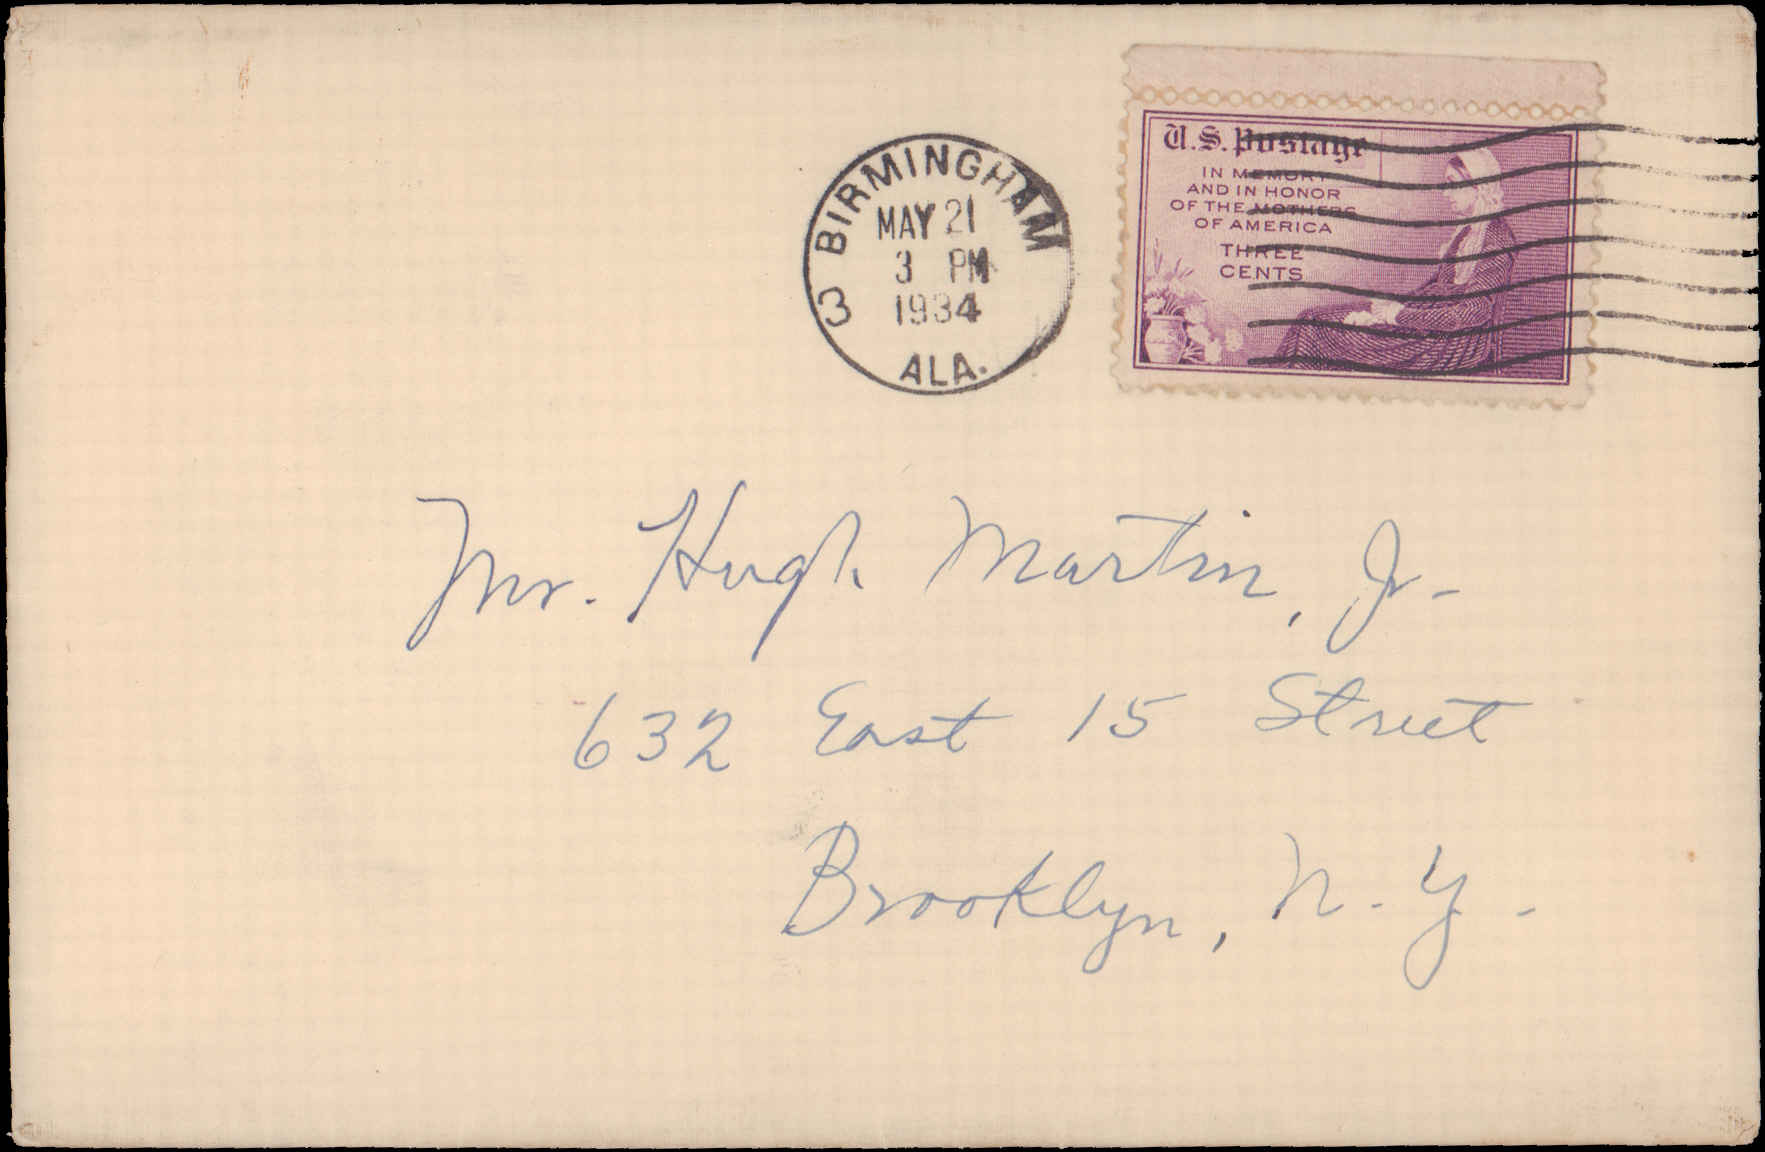 BIRMINGHAM
MAY 21
3 PM
1934
3
ALA.
U.S. Postage
IN MEMORY
AND IN HONOR
OF THE MOTHERS
OF AMERICA
THREE
CENTS
Mr. Hugh Martin, Jr.
632 East 15 Street
Brooklyn, N.Y.